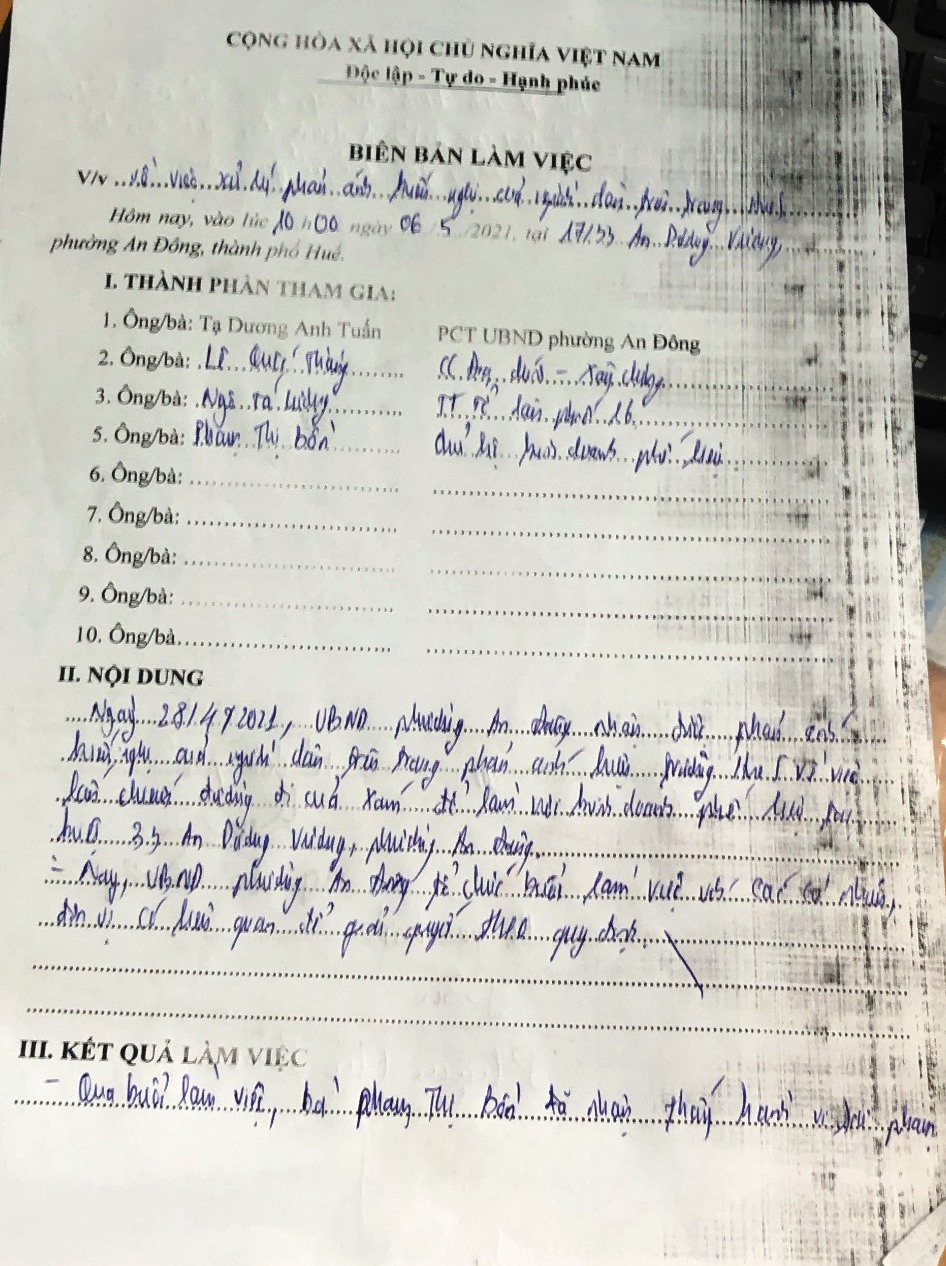 CỘNG HÒA XÃ HỘI CHỦ NGHĨA VIỆT NAM
Độc lập - Tự do - Hạnh phúc
BIÊN BẢN LÀM VIỆC
V/v ..về việc xử lý phản ánh kiến nghị của người dân trên trang Hue-S
Hôm nay, vào lúc 10 h00 ngày 06 / 5 /2021, tại 17/33 An Dương Vương,
phường An Đông, thành phố Huế.
I. THÀNH PHẦN THAM GIA:
1. Ông/bà: Tạ Dương Anh Tuấn PCT UBND phường An Đông
2. Ông/bà: Lê Quốc Thắng CC Địa chính - Xây dựng
3. Ông/bà: Ngô Tá TT Tổ dân phố 16
5. Ông/bà: Phạm Thị Bốn Chủ hộ kinh doanh phế liệu
6. Ông/bà:
7. Ông/bà:
8. Ông/bà:
9. Ông/bà:
10. Ông/bà
II. NỘI DUNG
Ngày 28/4/2021, UBND phường An Đông nhận được phản ánh
kiến nghị của người dân trên trang phản ánh hiện trường Hue-S về việc
lấn chiếm đường đi của xóm để làm nơi kinh doanh phế liệu tại
kiệt 33 An Dương Vương, phường An Đông.
- Nay, UBND phường An Đông tổ chức buổi làm việc với các cá nhân,
đơn vị có liên quan để giải quyết theo quy định.
III. KẾT QUẢ LÀM VIỆC
- Qua buổi làm việc, bà Phạm Thị Bốn đã nhận thấy hành vi vi phạm